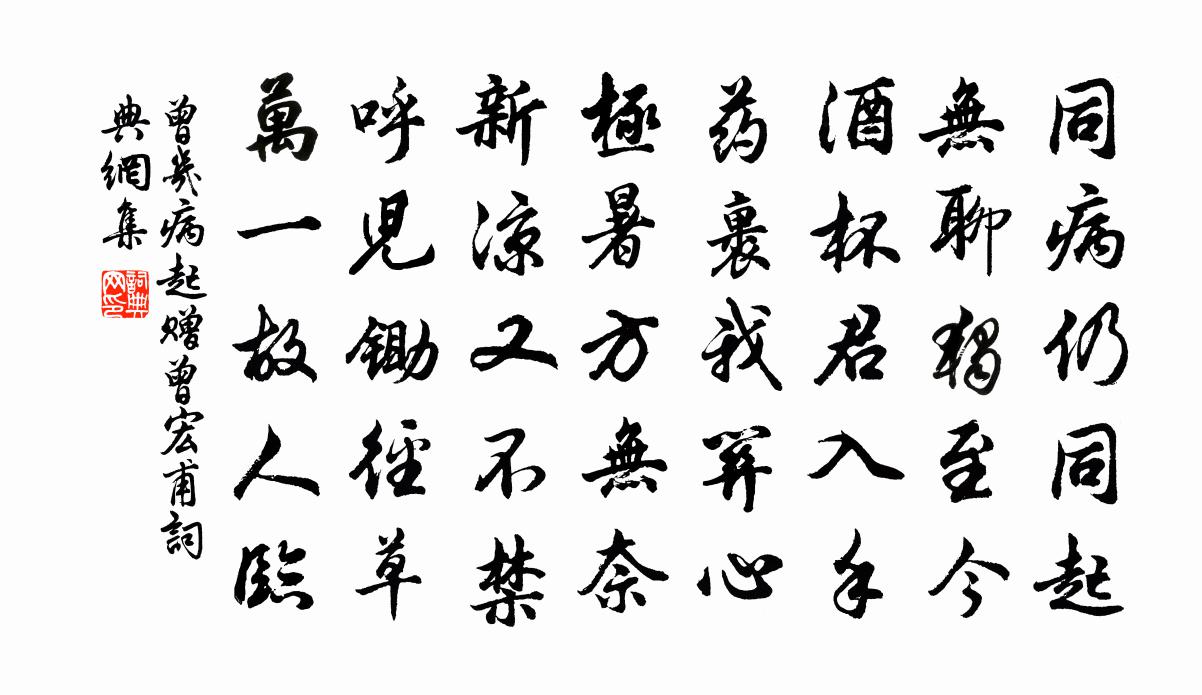 同病仍同起
無聊獨至今
酒杯君入手
药裹我關心
極暑方無奈
新涼又不禁
呼児鋤徑草
萬一故人臨
曾幾病起赠曾宏甫詞
典網集
詞典
网印